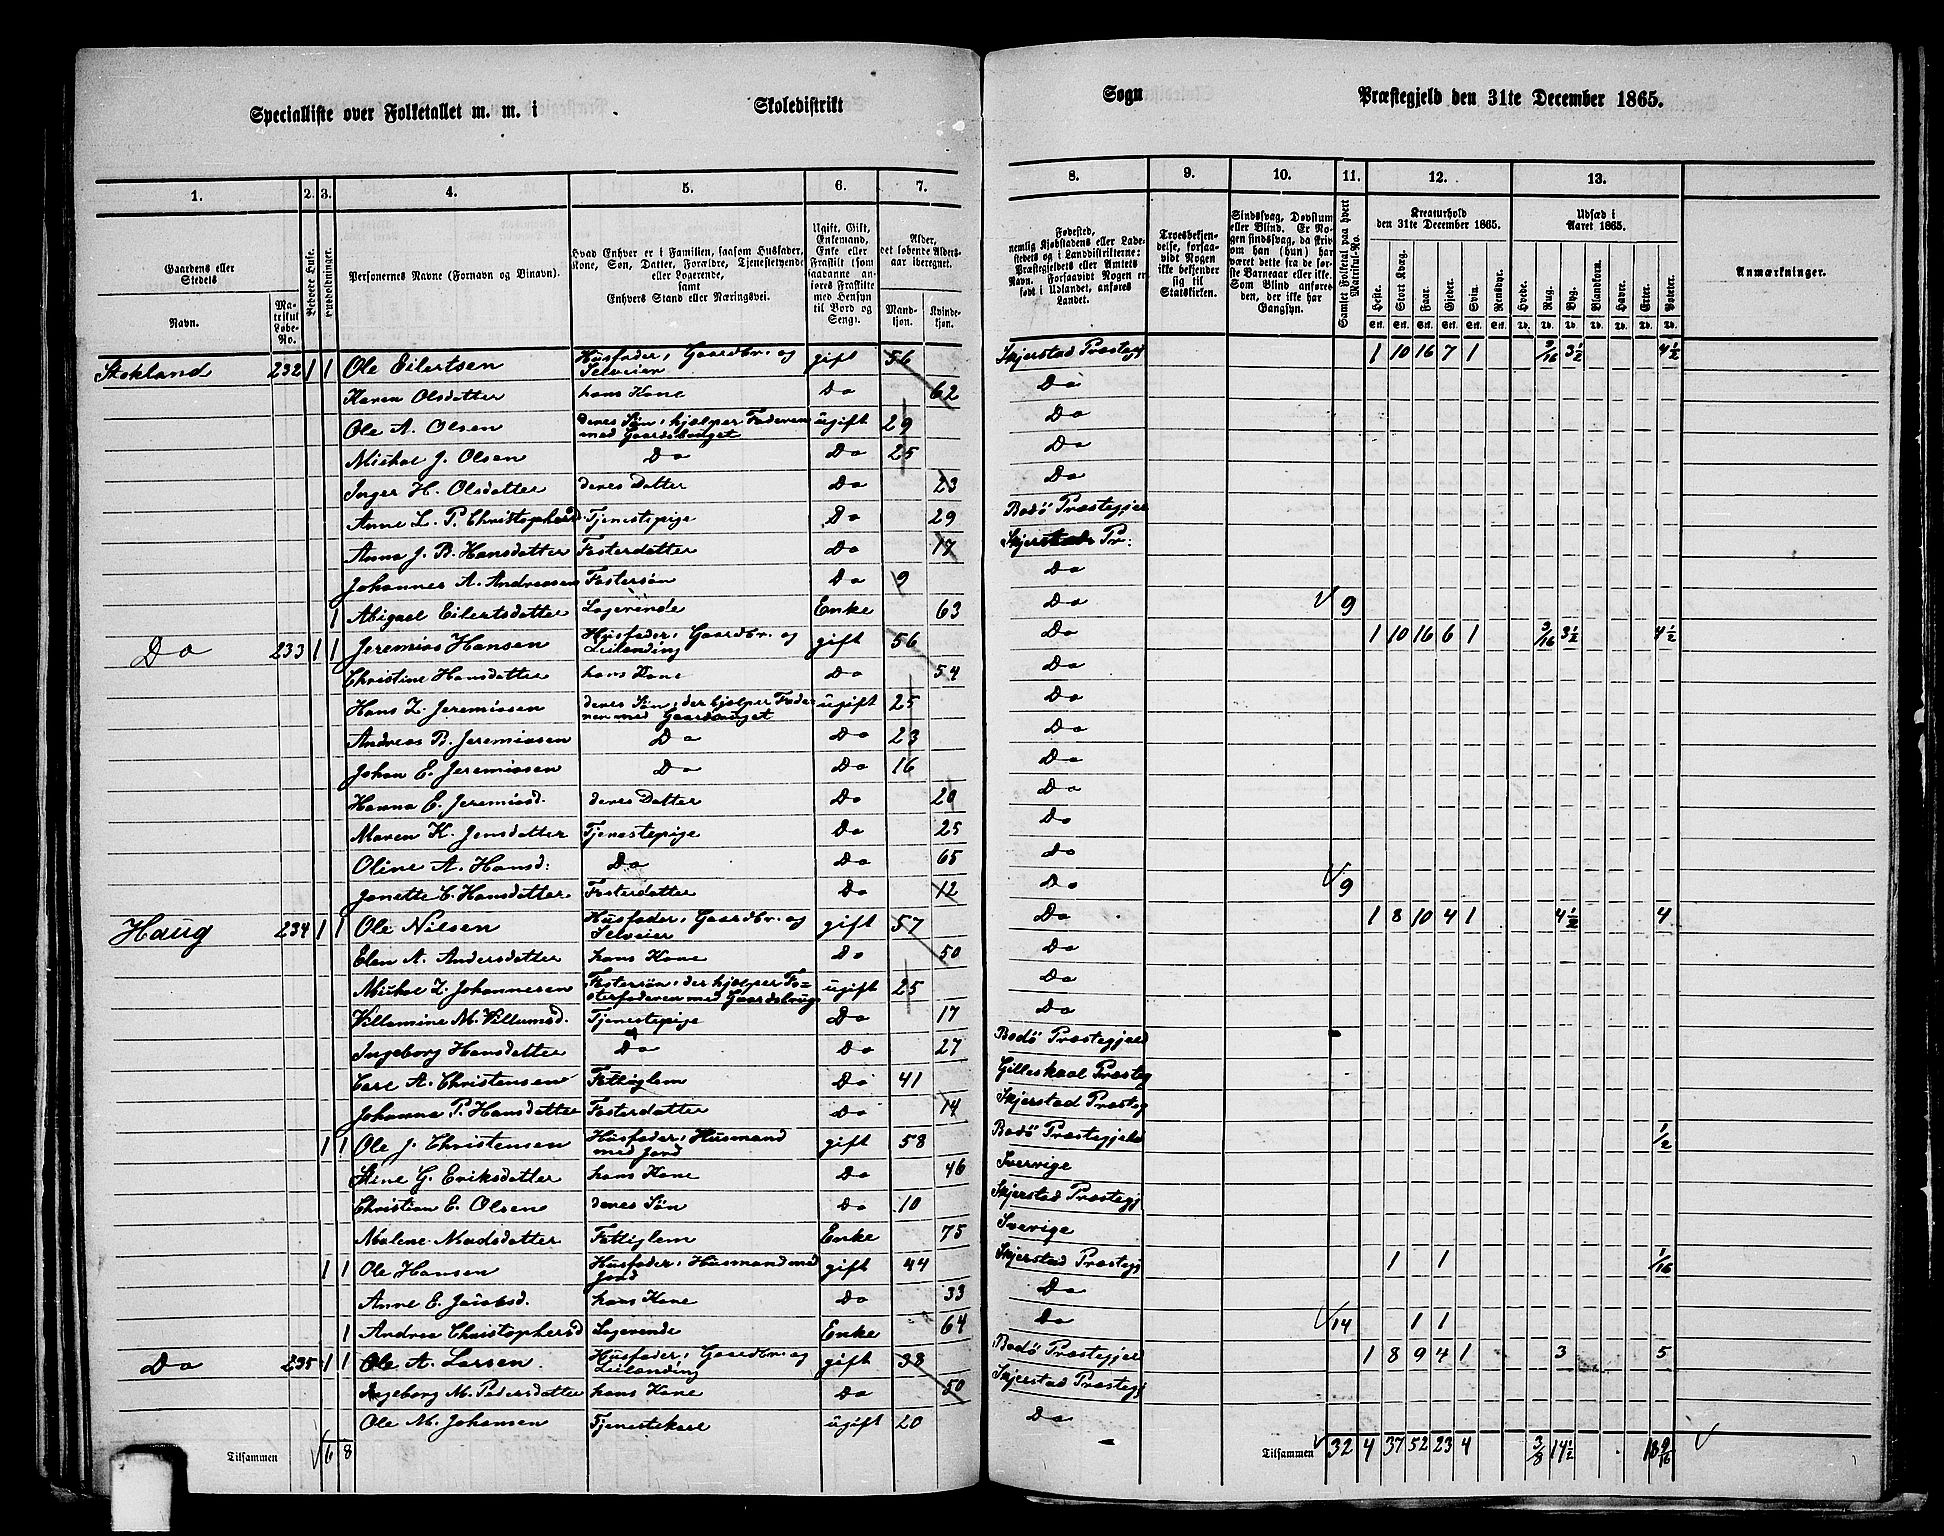 Specialliste over Folketallet m. m. i Skoledistrikt Sogn Præstegjeld den 31te December 1865.
1. 2. 3. 4. 5. 6. 7. 8. 9. 10. 11. 12. 13.
Gaardens eller Stedets Navn. Matrikul Løbe-No. Beboede Huse. Huusholdninger. Personernes Navne (Fornavn og Binavn). Hvad Enhver er i Familien, saasom Husfader, Kone, Søn, Datter, Forældre, Tjenestetyende eller Logerende, samt Enhvers Stand eller Næringsvei. Ugift, Gift, Enkemand, Enke eller Fraskilt (som saadanne anføres Fraskilte med Hensyn til Bord og Seng). Alder, det løbende Aldersaar iberegnet. Mandkjøn. Kvindekjøn.
Fødested, nemlig Kjøbstadens eller Ladestedets og i Landdistrikterne: Præstegjeldets eller Amtets Navn. Forsaavidt Nogen er født i Udlandet, anføres Landet. Troesbekjendelse, forsaavidt Nogen ikke bekjender sig til Statskirken. Sindssvag, Døvstum eller Blind. Er Nogen sindssvag, da skrives om han (hun) har været dette fra de første Barneaar eller ikke. Som Blind anføres den, der ikke har Gangsyn. Samlet Folketal paa hvert Matrikul-No. Kreaturhold den 31te December 1865. Udsæd i Aaret 1865. Anmærkninger.
Heste. Stort Kvæg. Faar. Gjeder. Svin. Rensdyr. Hvede. Rug. Byg. Blandkorn. Havre. Erter. Poteter.
Stokland 232 1 1 Ole Eilertsen Husfader, Gaardbr. og Selveier gift 56 Skjerstad Præstegj 1 10 16 7 1 3/16 3 1/2 4 1/2
Karen Olsdatter hans Kone Do 62 Do
Ole A. Olsen deres Søn, hjælper Faderen med Gaardsbruget ugift 29 Do
Mikal J. Olsen Do Do 25 Do
Inger H. Olsdatter deres Datter Do 23 Do
Anne L. P. Christophersd. Tjenestepige Do 29 Bodö Præstegjel
Anna J. B. Hansdatter Fosterdatter Do 17 Skjerstads Pr:
Johannes A. Andreasen Fostersøn Do 9 Do
1 Abigael Eilertsdatter Logerende Enke 63 Do 9
Do 233 1 1 Jeremias Hansen Husfader, Gaardbr. og Leilænding gift 56 Do 1 10 16 6 1 3/16 3 1/2 4 1/2
Christine Hansdatter hans Kone Do 54 Do
Hans L. Jeremiasen deres Søn, der hjælper Faderen med Gaardsbruget ugift 25 Do
Andreas B. Jeremiasen Do Do 23 Do
Johan E. Jeremiasen Do Do 16 Do
Hanna E. Jeremiasd. deres Datter Do 20 Do
Maren K. Jensdatter Tjenestepige Do 25 Do
Oline A. Hansd: Do Do 65 Do
Jonette C. Hansdatter Fosterdatter Do 12 Do 9
Haug 234 1 1 Ole Nilsen Husfader, Gaardbr. og Selveier gift 57 Do 1 8 10 4 1 4 1/2 4
Elen A. Andersdatter hans Kone Do 50 Do
Mikal L. Johannesen Fostersøn, der hjælper Fosterfaderen med Gaardsbrug ugift 25 Do
Villumine M. Villumsd. Tjenestepige Do 17 Do
Ingeborg Hansdatter Do Do 27 Bodö Præstegjeld
Carl A. Christensen Fattiglem Do 41 Gilleskaal Præsteg
Johanna P. Hansdatter Fosterdatter Do 14 Skjerstad Præsteg
1 1 Ole J. Christensen Husfader, Husmand med Jord gift 58 Bodö Præstegjeld 1/2
Stine G. Eriksdatter hans Kone Do 46 Sverrige
Christian E. Olsen deres Søn Do 10 Skjerstad Præstegj
Malene Madsdatter Fattiglem Enke 75 Sverige
1 1 Ole Hansen Husfader, Husmand med Jord gift 44 Skjerstad Præstegj 1 1 1/16
Anne E. Jacobsd. hans Kone Do 33 Do
1 Andrea Christophersd Logerende Enke 64 Do 14 1 1
Do 235 1 1 Ole A. Larsen Husfader, Gaardbr. og Leilænding gift 38 Bodö Præstegjeld 1 8 9 4 1 3 5
Ingeborg M. Pedersdatter hans Kone Do 50 Skjerstad Præstegj
Ole M. Johansen Tjenestekarl ugift 20 Do
Tilsammen 6 8 Tilsammen 32 4 37 52 23 4 3/8 14 1/2 18 9/16